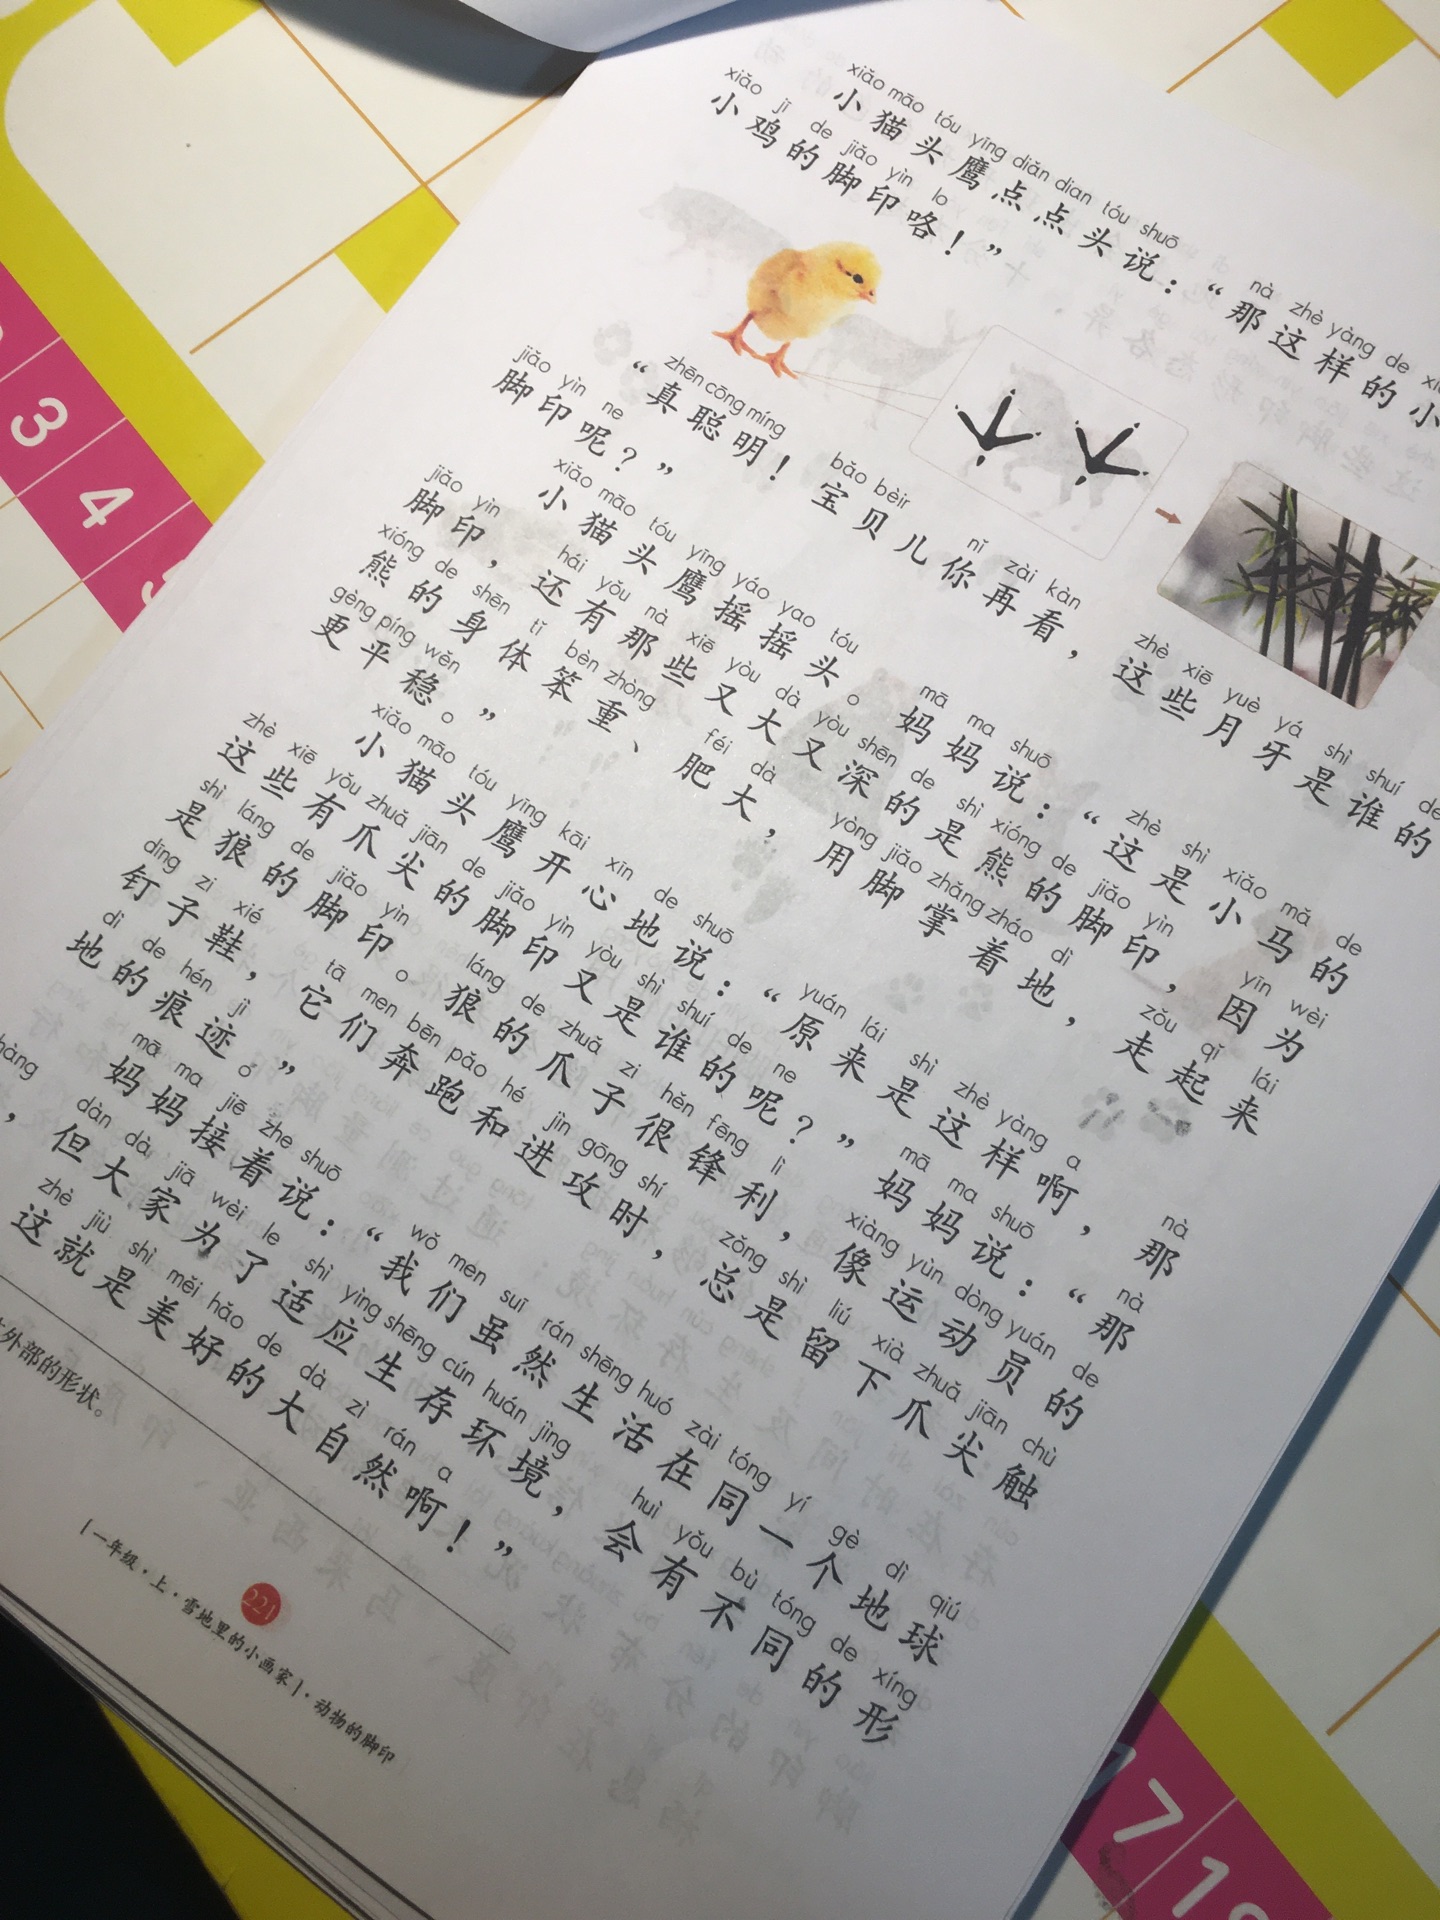 xiǎo māo tóu yīng diǎn dian tóu shuō nà zhè yàng de
小猫头鹰点点头说：“那这样的小
xiǎo jī de jiǎo yìn lo
小鸡的脚印咯！”
zhēn cōng míng bǎo bèir nǐ zài kàn zhè xiē yuè yá shì shuí de
“真聪明！宝贝儿你再看，这些月牙是谁的
jiǎo yìn ne
脚印呢？”
xiǎo māo tóu yīng yáo yao tóu mā ma shuō zhè shì xiǎo mǎ de
小猫头鹰摇摇头。妈妈说：“这是小马的
jiǎo yìn hái yǒu nà xiē yòu dà yòu shēn de shì xióng de jiǎo yìn yīn wèi
脚印，还有那些又大又深的是熊的脚印，因为
xióng de shēn tǐ bèn zhòng féi dà yòng jiǎo zhǎng zháo dì zǒu qǐ lái
熊的身体笨重、肥大，用脚掌着地，走起来
gèng píng wěn
更平稳。”
xiǎo māo tóu yīng kāi xīn de shuō yuán lái shì zhè yàng a nà
小猫头鹰开心地说：“原来是这样啊，那
zhè xiē yǒu zhuǎ jiān de jiǎo yìn yòu shì shuí de ne mā ma shuō nà
这些有爪尖的脚印又是谁的呢？”妈妈说：“那
shì láng de jiǎo yìn láng de zhuǎ zi hěn fēng lì xiàng yùn dòng yuán de
是狼的脚印。狼的爪子很锋利，像运动员的
dīng zi xié tā men bēn pǎo hé jìn gōng shí zǒng shì liú xià zhuǎ jiān chù
钉子鞋，它们奔跑和进攻时，总是留下爪尖触
dì de hén jì
地的痕迹。”
mā ma jiē zhe shuō wǒ men suī rán shēng huó zài tóng yí gè dì qiú
妈妈接着说：“我们虽然生活在同一个地球
dàn dà jiā wèi le shì yìng shēng cún huán jìng huì yǒu bù tóng de xíng
，但大家为了适应生存环境，会有不同的形
zhè jiù shì měi hǎo de dà zì rán a
这就是美好的大自然啊！”
外部的形状。
221
「一年级·上·雪地里的小画家」·动物的脚印
3
4
17